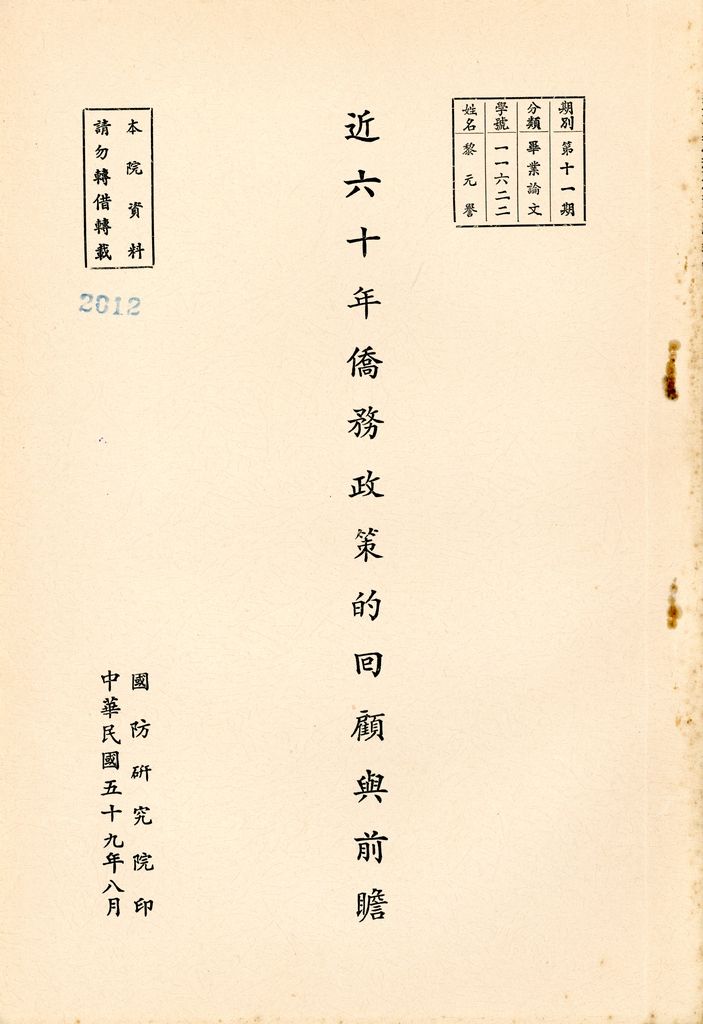 期別 第十一期
分類 畢業論文
學號 一一六二二
姓名 黎元譽
近六十年僑務政策的回顧與前瞻
本院資料
請勿轉借轉載
2612
國防研究院印
中華民國五十九年八月